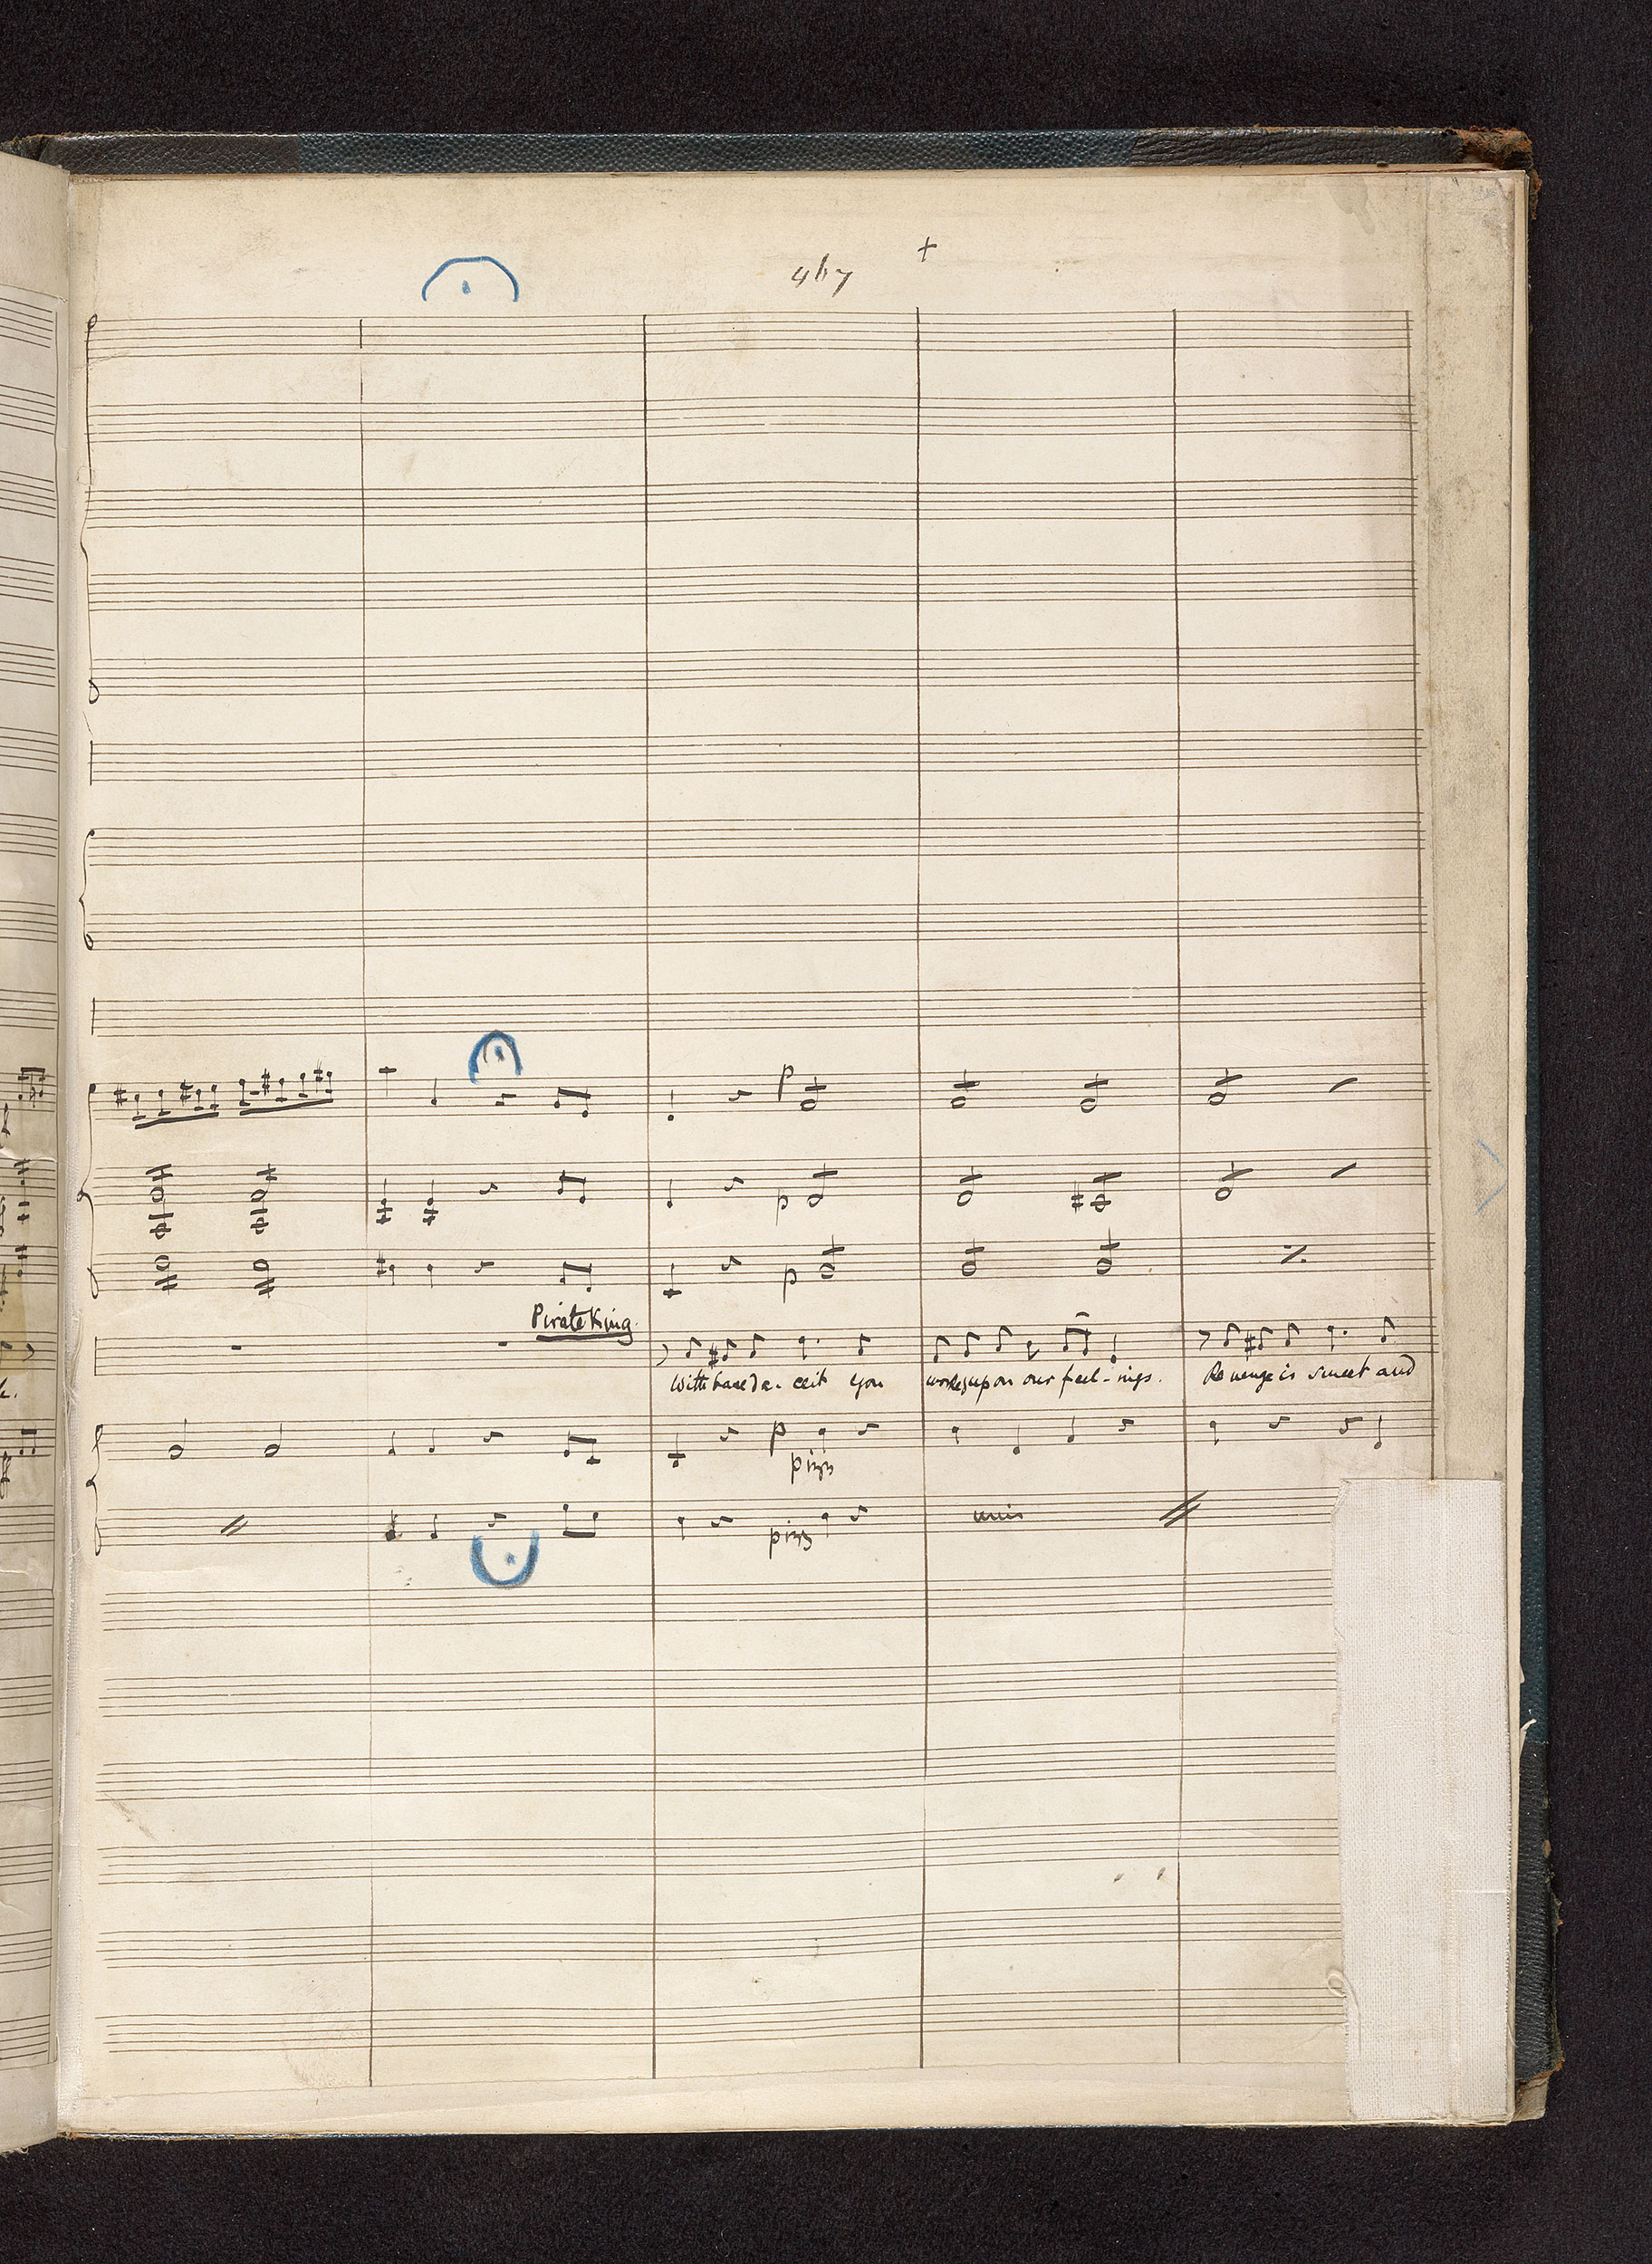 467
+
p
p
p
Pirate King.
With base de-ceit you worked upon our feel-ings. Revenge is sweet and
p
pizz
pizz
unis